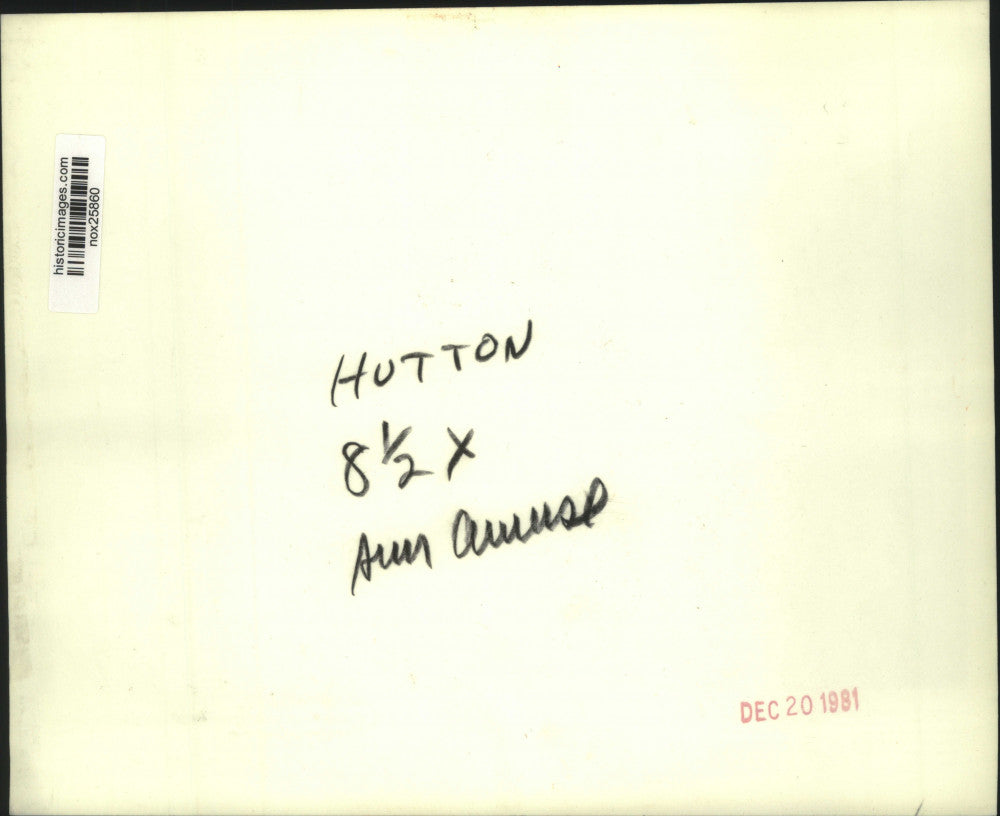 historicimages.com
nox25860
HUTTON
8 1/2 X
Sun Amuse
DEC 20 1981